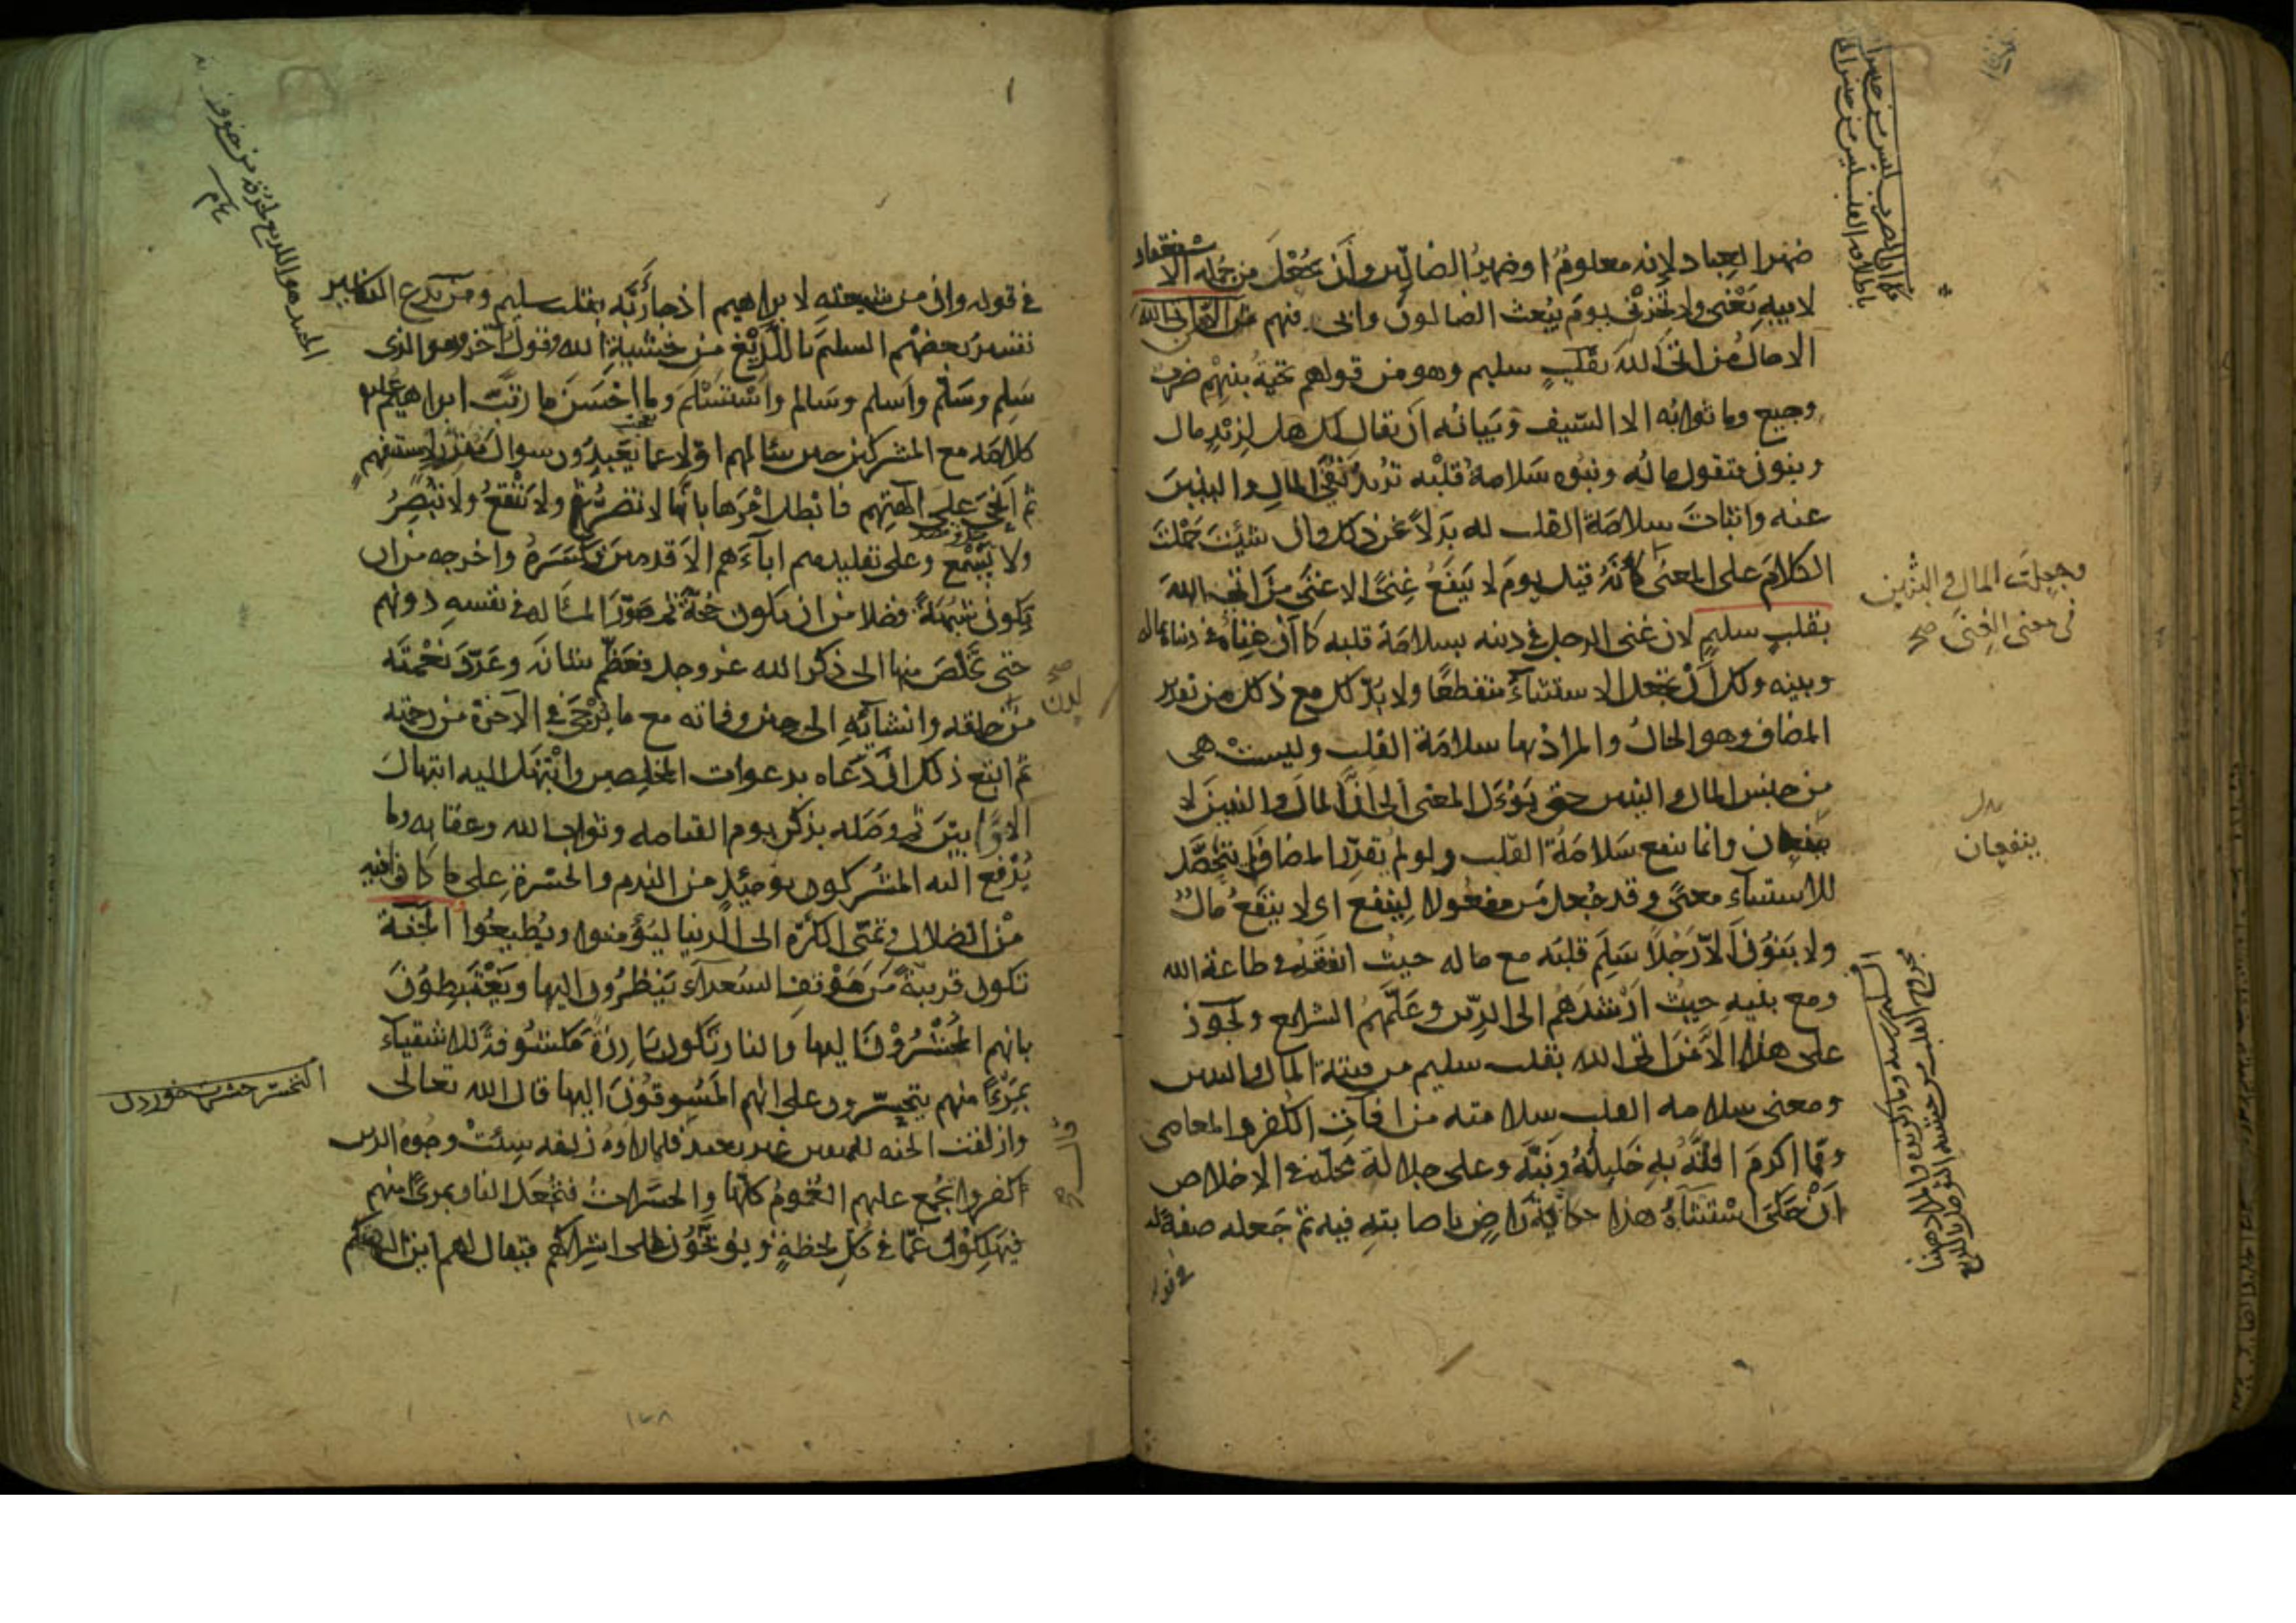 ضمير العباد لانه معلوم او ضمير الضالين وان يجعل من جملة الاستغفار
لابيه يعنى ولا تخزنى يوم يبعث الضالون وابى فيهم الا من اتى الله
الا حال من اتى الله بقلب سليم وهو من قولهم تحية بينهم ضرب
وجيع وما ثوابه الا السيف وبيانه ان يقال لك هل لزيد مال
وبنون فتقول ماله وبنوه سلامة قلبه تريد نفى المال والبنين
عنه واثبات سلامة القلب له بدلا عن ذلك وان شئت حملت
الكلام على المعنى كأنه قيل يوم لا ينفع غنى الا غنى من اتى الله
بقلب سليم لان غنى الرجل فى دينه بسلامة قلبه كما ان غناه فى دنياه بماله
وبنيه ولك ان تجعل الاستثناء منقطعا ولا بد لك مع ذلك من تقدير
المضاف وهو الحال والمراد بها سلامة القلب وليست هى
من جنس المال والبنين حتى يؤول المعنى الى ان المال والبنين لا
ينفعان وانما ينفع سلامة القلب ولو لم يقدر المضاف لم يتحصل
للاستثناء معنى وقد جعل من مفعولا لينفع اى لا ينفع مال
ولا بنون الا رجلا سلم قلبه مع ماله حيث انفقه فى طاعة الله
ومع بنيه حيث ارشدهم الى الدين وعلمهم الشرايع ويجوز
على هذا الا من اتى الله بقلب سليم من فتنة المال والبنين
ومعنى سلامة القلب سلامته من افات الكفر والمعاصى
ومما اكرم الله به خليله ونبه على جلالة محله فى الاخلاص
ان حكى استثناءه هذا حكاية راض باصابته فيه ثم جعله صفة له
فى قوله
وجعلت المال والبنين
فى معنى الغنى صح
بدل
ينفعان
فى قوله وان من شيعته لابراهيم اذ جاء ربه بقلب سليم ومن بدع التفاسير
تفسير بعضهم السليم باللديغ من خشية الله وقول اخر هو الذى
سلم وسلم واسلم وسالم واستسلم وما احسن ما رتب ابراهيم عليه
كلامه مع المشركين حين سألهم اولا عما يعبدون سؤال مقرر لا مستفهم
ثم انحى على الهتهم فابطل امرها بانها لا تضر ولا تنفع ولا تبصر
ولا تسمع وعلى تقليدهم اباءهم الاقدمين فكسره واخرجه من ان
يكون شبهة فضلا من ان يكون حجة ثم صور المسألة فى نفسه دونهم
حتى تخلص منها الى ذكر الله عز وجل فعظم شانه وعدد نعمته
من خلقه وانشائه الى حين وفاته مع ما يرجى فى الاخرة من رحمته
ثم اتبع ذلك ان دعاه بدعوات المخلصين وابتهل اليه ابتهال
الاوابين ثم وصله بذكر يوم القيامه وثواب الله وعقابه وما
يدفع اليه المشركون يومئذ من الندم والحسرة على ما كانوا فيه
من الضلال وتمنى الكرة الى الدنيا ليؤمنوا ويطيعوا الجنة
تكون قريبة من موقف السعداء ينظرون اليها ويغتبطون
بانهم المحشرون اليها والنار تكون بارزة مكشوفة للاشقياء
بمرءا منهم يتحسرون على انهم المسوقون اليها قال الله تعالى
وازلفت الجنه للمتقين غير بعيد فلما راوه زلفه سيئت وجوه الذين
كفروا يجمع عليهم الغموم كلها والحسرات فتجعل النار بمرءا منهم
فيهلكون غما فى كل لحظة ويوبخون على اشراكهم فيقال لهم اين الهتكم
لدن
صح
التحسر حسرت خوردن
١٢٨